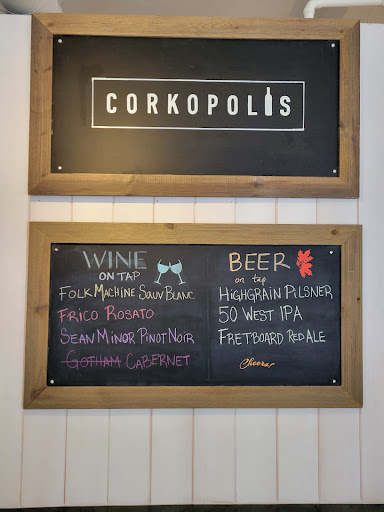 CORKOPOLIS
WINE
ON TAP
FOLK MACHINE SAUV BLANC
FRICO ROSATO
SEAN MINOR PINOT NOIR
GOTHAM CABERNET
BEER
on tap
HIGHGRAIN PILSNER
50 WEST IPA
FRETBOARD RED ALE
Cheers!